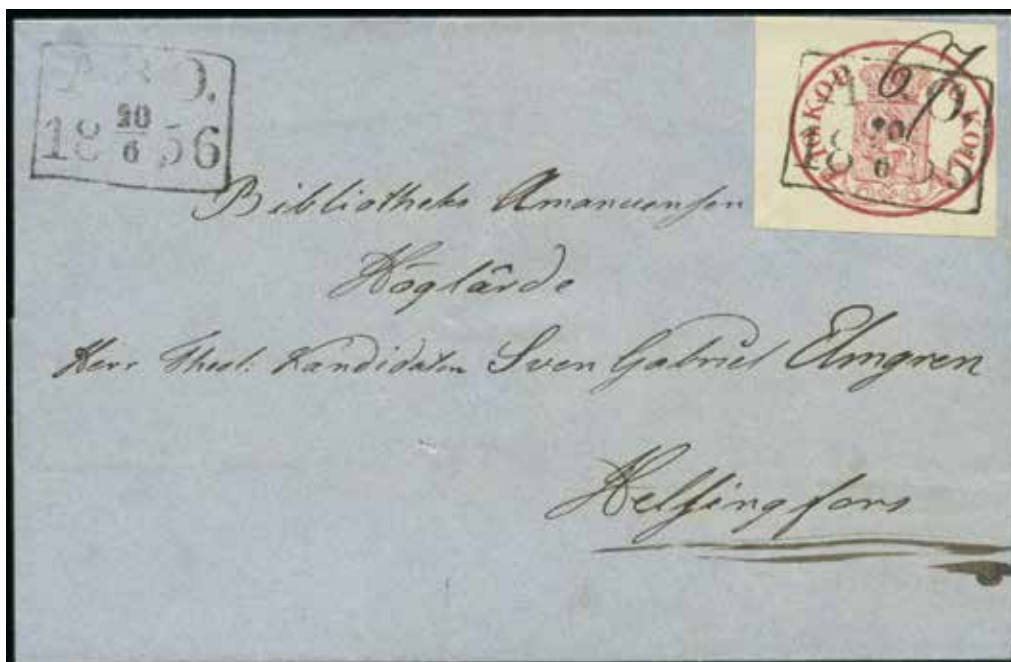 ÅBO.
18 20/6 56
67
10 KOP. 10 КОП.
Bibliotheks Amanuensen
Höglärde
Herr Theol. Kandidaten Sven Gabriel Elmgren
Helsingfors